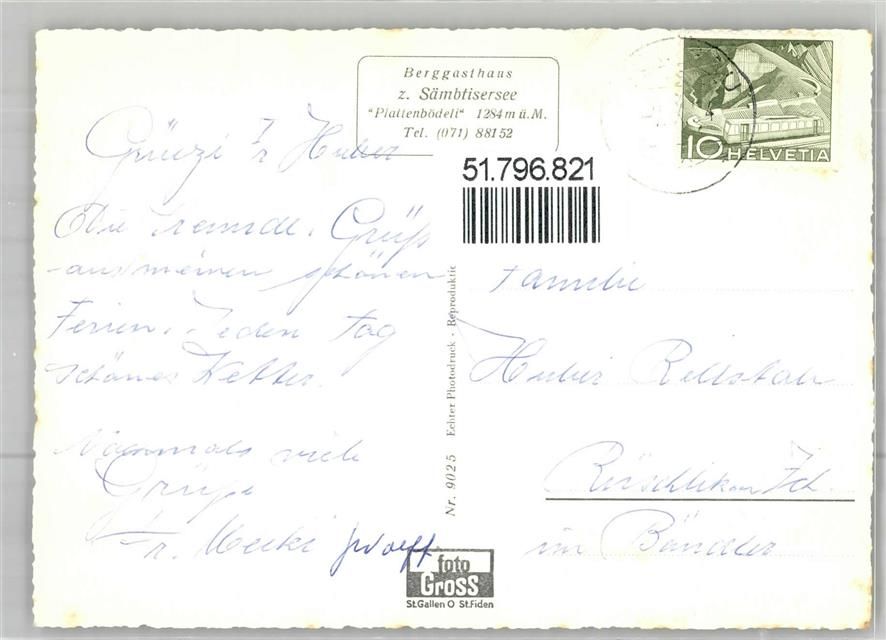 Berggasthaus
z. Sämbtisersee
"Plattenbödeli" 1284 m ü.M.
Tel. (071) 88152
10 HELVETIA
51.796.821
Grüezi Fr Huber
Die Grüße
aus meinen schönen
Ferien. Jeden Tag
schönes Wetter.
Nochmals viele
Grüße
Fr.
Nr. 9025 Echter Photodruck - Reproduktic
Familie
Huber Rellstab
Rüschlikon Zch.
im Bändler
foto
Gross
St.Gallen O St.Fiden